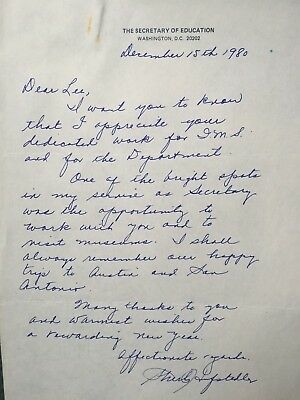 THE SECRETARY OF EDUCATION
WASHINGTON, D.C. 20202
December 15th 1980
Dear Lee,
I want you to know
that I appreciate your
dedicated work for I.M.S.
and for the Department.
One of the bright spots
in my service as Secretary
was the opportunity to
work with you and to
visit museums. I shall
always remember our happy
trips to Austin and San
Antonio.
Many thanks to you
and warmest wishes for
a rewarding New Year.
Affectionate regards.
Hufstedler